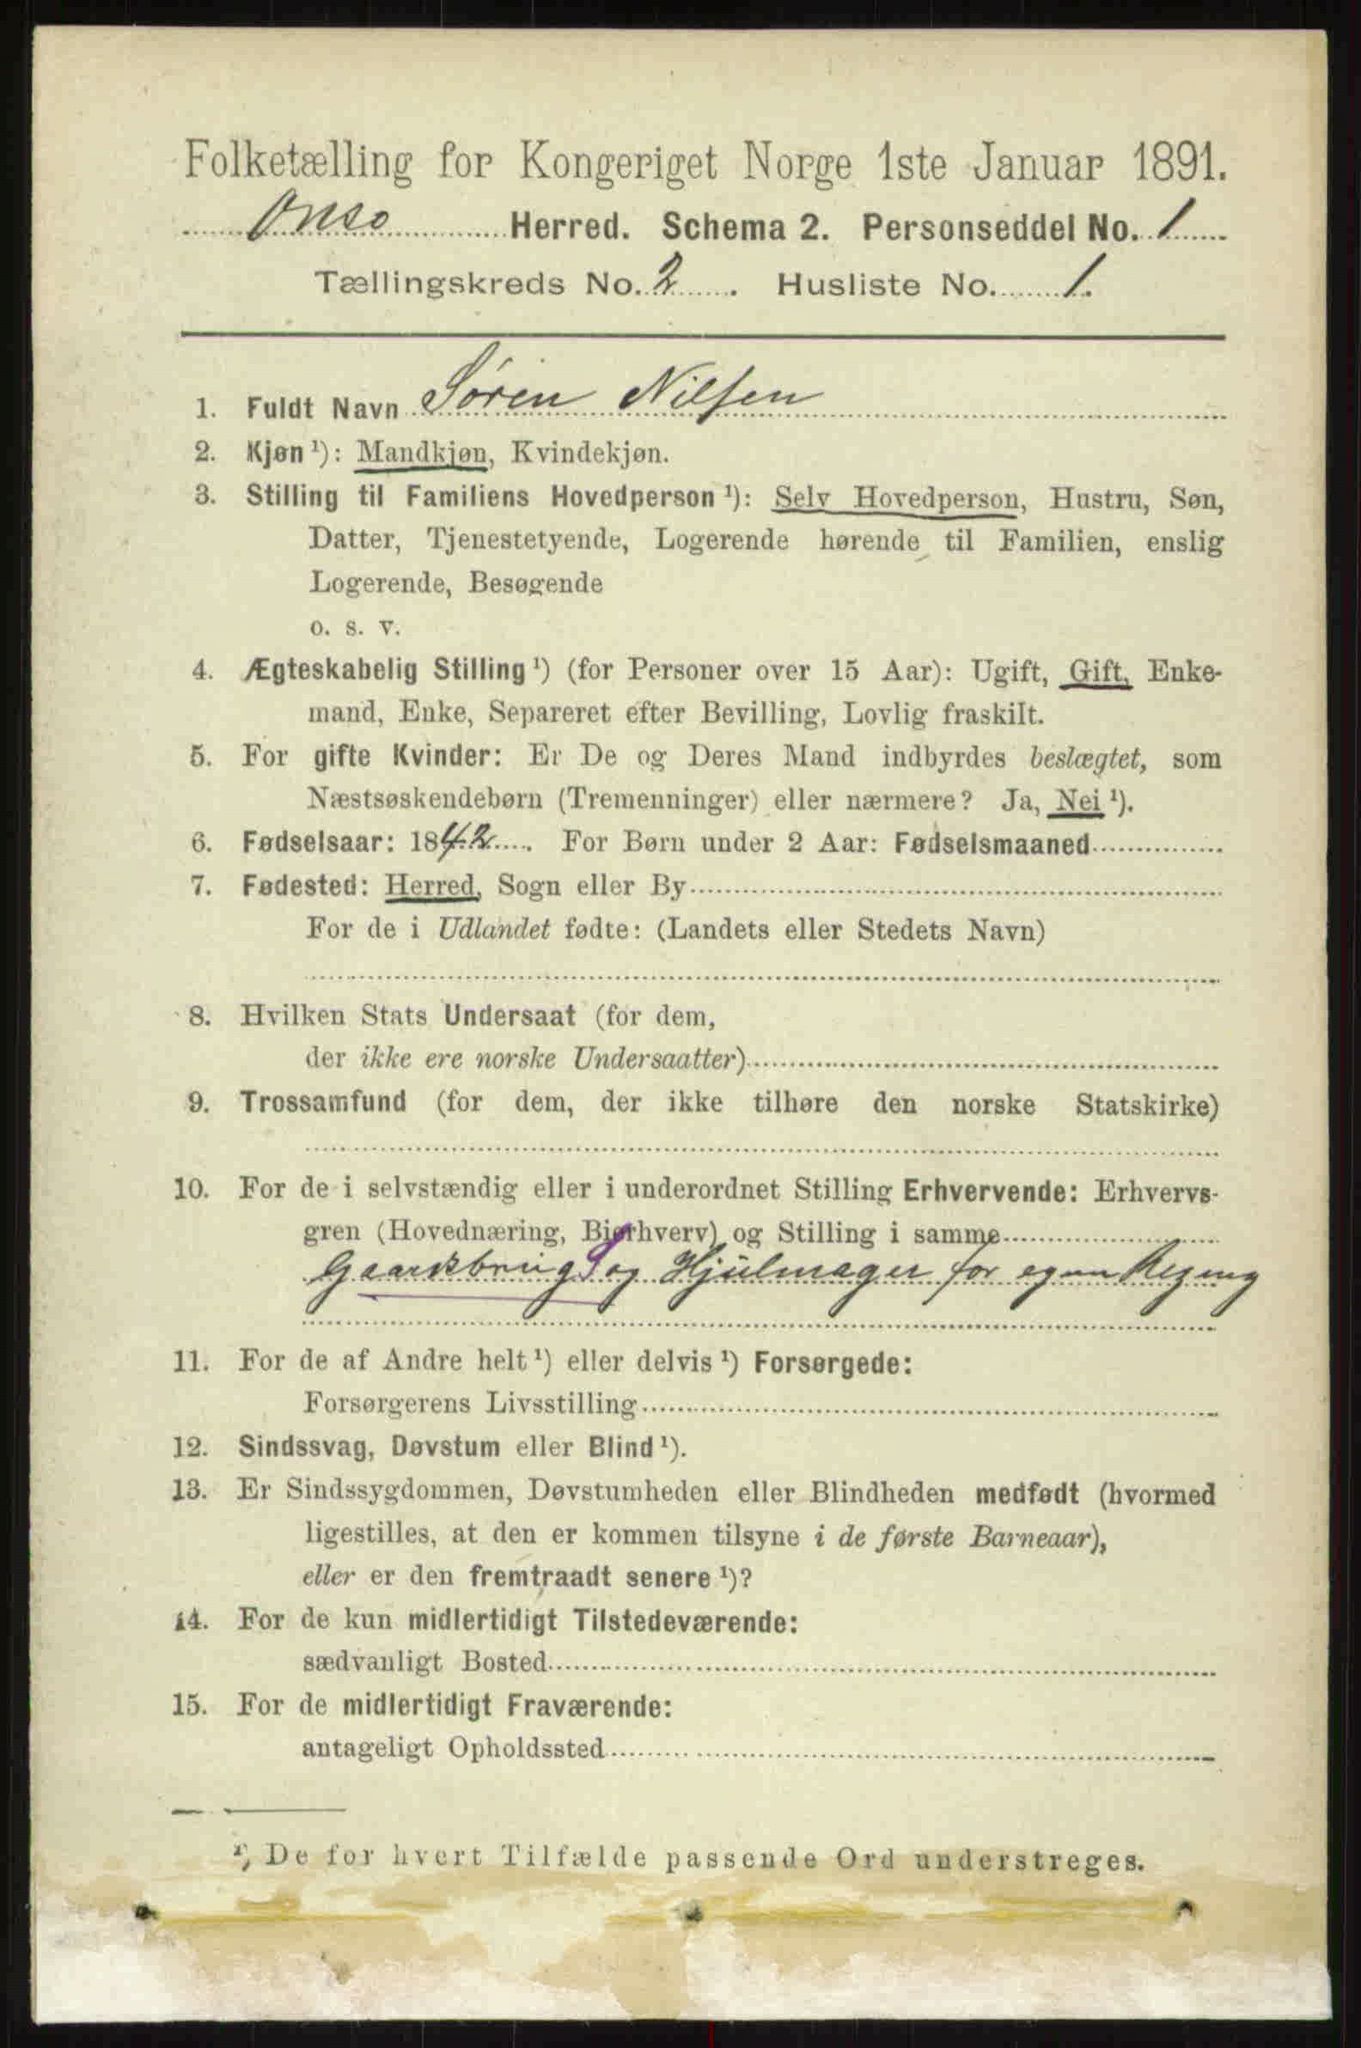 Folketælling for Kongeriget Norge 1ste Januar 1891.
Onsø Herred. Schema 2. Personseddel No. 1
Tællingskreds No. 2. Husliste No. 1.
1. Fuldt Navn Søren Nilsen
2. Kjøn ¹): Mandkjøn, Kvindekjøn.
3. Stilling til Familiens Hovedperson ¹): Selv Hovedperson, Hustru, Søn,
Datter, Tjenestetyende, Logerende hørende til Familien, enslig
Logerende, Besøgende
o. s. v.
4. Ægteskabelig Stilling ¹) (for Personer over 15 Aar): Ugift, Gift, Enke-
mand, Enke, Separeret efter Bevilling, Lovlig fraskilt.
5. For gifte Kvinder: Er De og Deres Mand indbyrdes beslægtet, som
Næstsøskendebørn (Tremenninger) eller nærmere? Ja, Nei ¹).
6. Fødselsaar: 1842. For Børn under 2 Aar: Fødselsmaaned
7. Fødested: Herred, Sogn eller By
For de i Udlandet fødte: (Landets eller Stedets Navn)
8. Hvilken Stats Undersaat (for dem,
der ikke ere norske Undersaatter)
9. Trossamfund (for dem, der ikke tilhøre den norske Statskirke)
10. For de i selvstændig eller i underordnet Stilling Erhvervende: Erhvervs-
gren (Hovednæring, Bierhverv) og Stilling i samme
Gaardsbrug S og Hjulmager for egen Regning
11. For de af Andre helt ¹) eller delvis ¹) Forsørgede:
Forsørgerens Livsstilling
12. Sindssvag, Døvstum eller Blind ¹).
13. Er Sindssygdommen, Døvstumheden eller Blindheden medfødt (hvormed
ligestilles, at den er kommen tilsyne i de første Barneaar),
eller er den fremtraadt senere ¹)?
14. For de kun midlertidigt Tilstedeværende:
sædvanligt Bosted
15. For de midlertidigt Fraværende:
antageligt Opholdssted
¹) De for hvert Tilfælde passende Ord understreges.